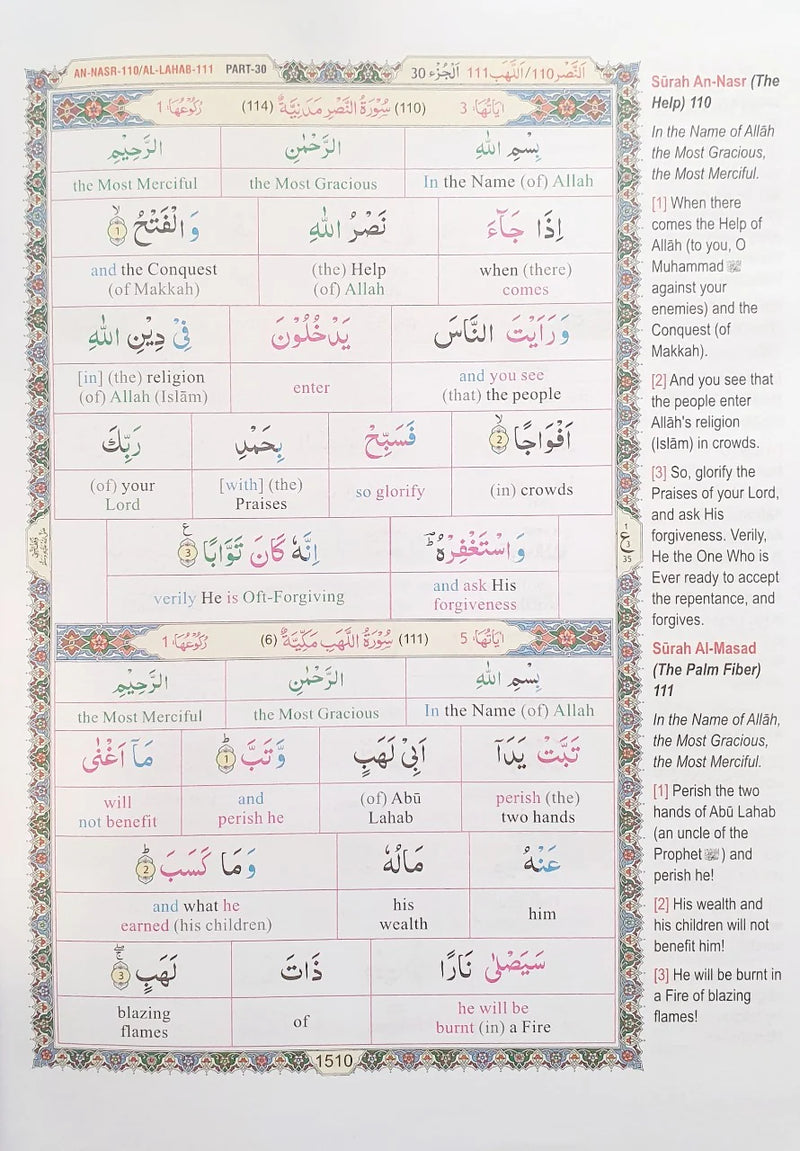 AN-NASR-110/AL-LAHAB-111 PART-30 اَلْجُزْء 30 اَلنَّصْر110/اَللَّهَب111
رُكُوْعُهَا: 1 (114) سُوْرَةُ النَّصْرِ مَدَنِيَّةٌ (110) اٰيَاتُهَا: 3
بِسْمِ اللّٰهِ الرَّحْمٰنِ الرَّحِيْمِ
In the Name (of) Allah the Most Gracious the Most Merciful
اِذَا جَآءَ نَصْرُ اللّٰهِ وَالْفَتْحُ ۙ 1
when (there) comes (the) Help (of) Allah and the Conquest (of Makkah)
وَرَاَيْتَ النَّاسَ يَدْخُلُوْنَ فِيْ دِيْنِ اللّٰهِ
and you see (that) the people enter [in] (the) religion (of) Allah (Islām)
اَفْوَاجًا ۙ 2 فَسَبِّحْ بِحَمْدِ رَبِّكَ
(in) crowds so glorify [with] (the) Praises (of) your Lord
وَاسْتَغْفِرْهُ ؕ اِنَّهٗ كَانَ تَوَّابًا 3 ع
and ask His forgiveness verily He is Oft-Forgiving
1 ع 35
رُكُوْعُهَا: 1 (6) سُوْرَةُ اللَّهَبِ مَكِّيَّةٌ (111) اٰيَاتُهَا: 5
بِسْمِ اللّٰهِ الرَّحْمٰنِ الرَّحِيْمِ
In the Name (of) Allah the Most Gracious the Most Merciful
تَبَّتْ يَدَآ اَبِيْ لَهَبٍ وَّتَبَّ ؕ 1 مَآ اَغْنٰى
perish (the) two hands (of) Abū Lahab and perish he will not benefit
عَنْهُ مَالُهٗ وَمَا كَسَبَ ؕ 2
him his wealth and what he earned (his children)
سَيَصْلٰى نَارًا ذَاتَ لَهَبٍ 3
he will be burnt (in) a Fire of blazing flames
1510
Sūrah An-Nasr (The
Help) 110
In the Name of Allāh
the Most Gracious,
the Most Merciful.
[1] When there
comes the Help of
Allāh (to you, O
Muhammad ﷺ
against your
enemies) and the
Conquest (of
Makkah).
[2] And you see that
the people enter
Allāh's religion
(Islām) in crowds.
[3] So, glorify the
Praises of your Lord,
and ask His
forgiveness. Verily,
He the One Who is
Ever ready to accept
the repentance, and
forgives.
Sūrah Al-Masad
(The Palm Fiber)
111
In the Name of Allāh,
the Most Gracious,
the Most Merciful.
[1] Perish the two
hands of Abū Lahab
(an uncle of the
Prophet ﷺ) and
perish he!
[2] His wealth and
his children will not
benefit him!
[3] He will be burnt in
a Fire of blazing
flames!